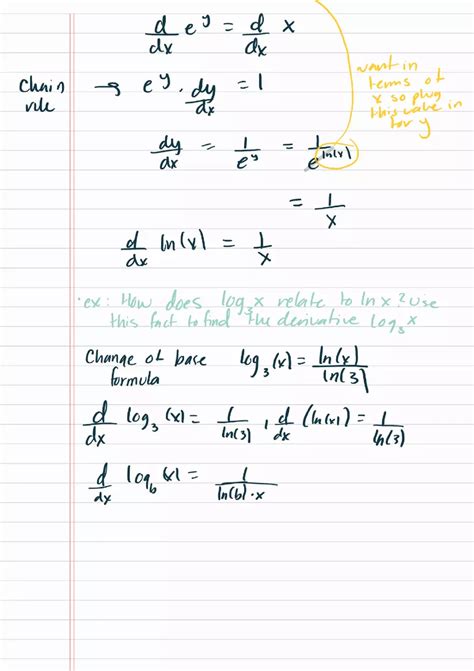 d/dx e^y = d/dx x
Chain rule → e^y · dy/dx = 1
want in terms of x so plug this value in for y
dy/dx = 1/e^y = 1/e^ln(x)
= 1/x
d/dx ln(x) = 1/x
·ex: How does log₃x relate to ln x? Use
this fact to find the derivative log₃x
Change of base formula log₃(x) = ln(x)/ln(3)
d/dx log₃(x) = 1/ln(3) · d/dx (ln(x)) = 1/ln(3)
d/dx log_b(x) = 1/ln(b)·x